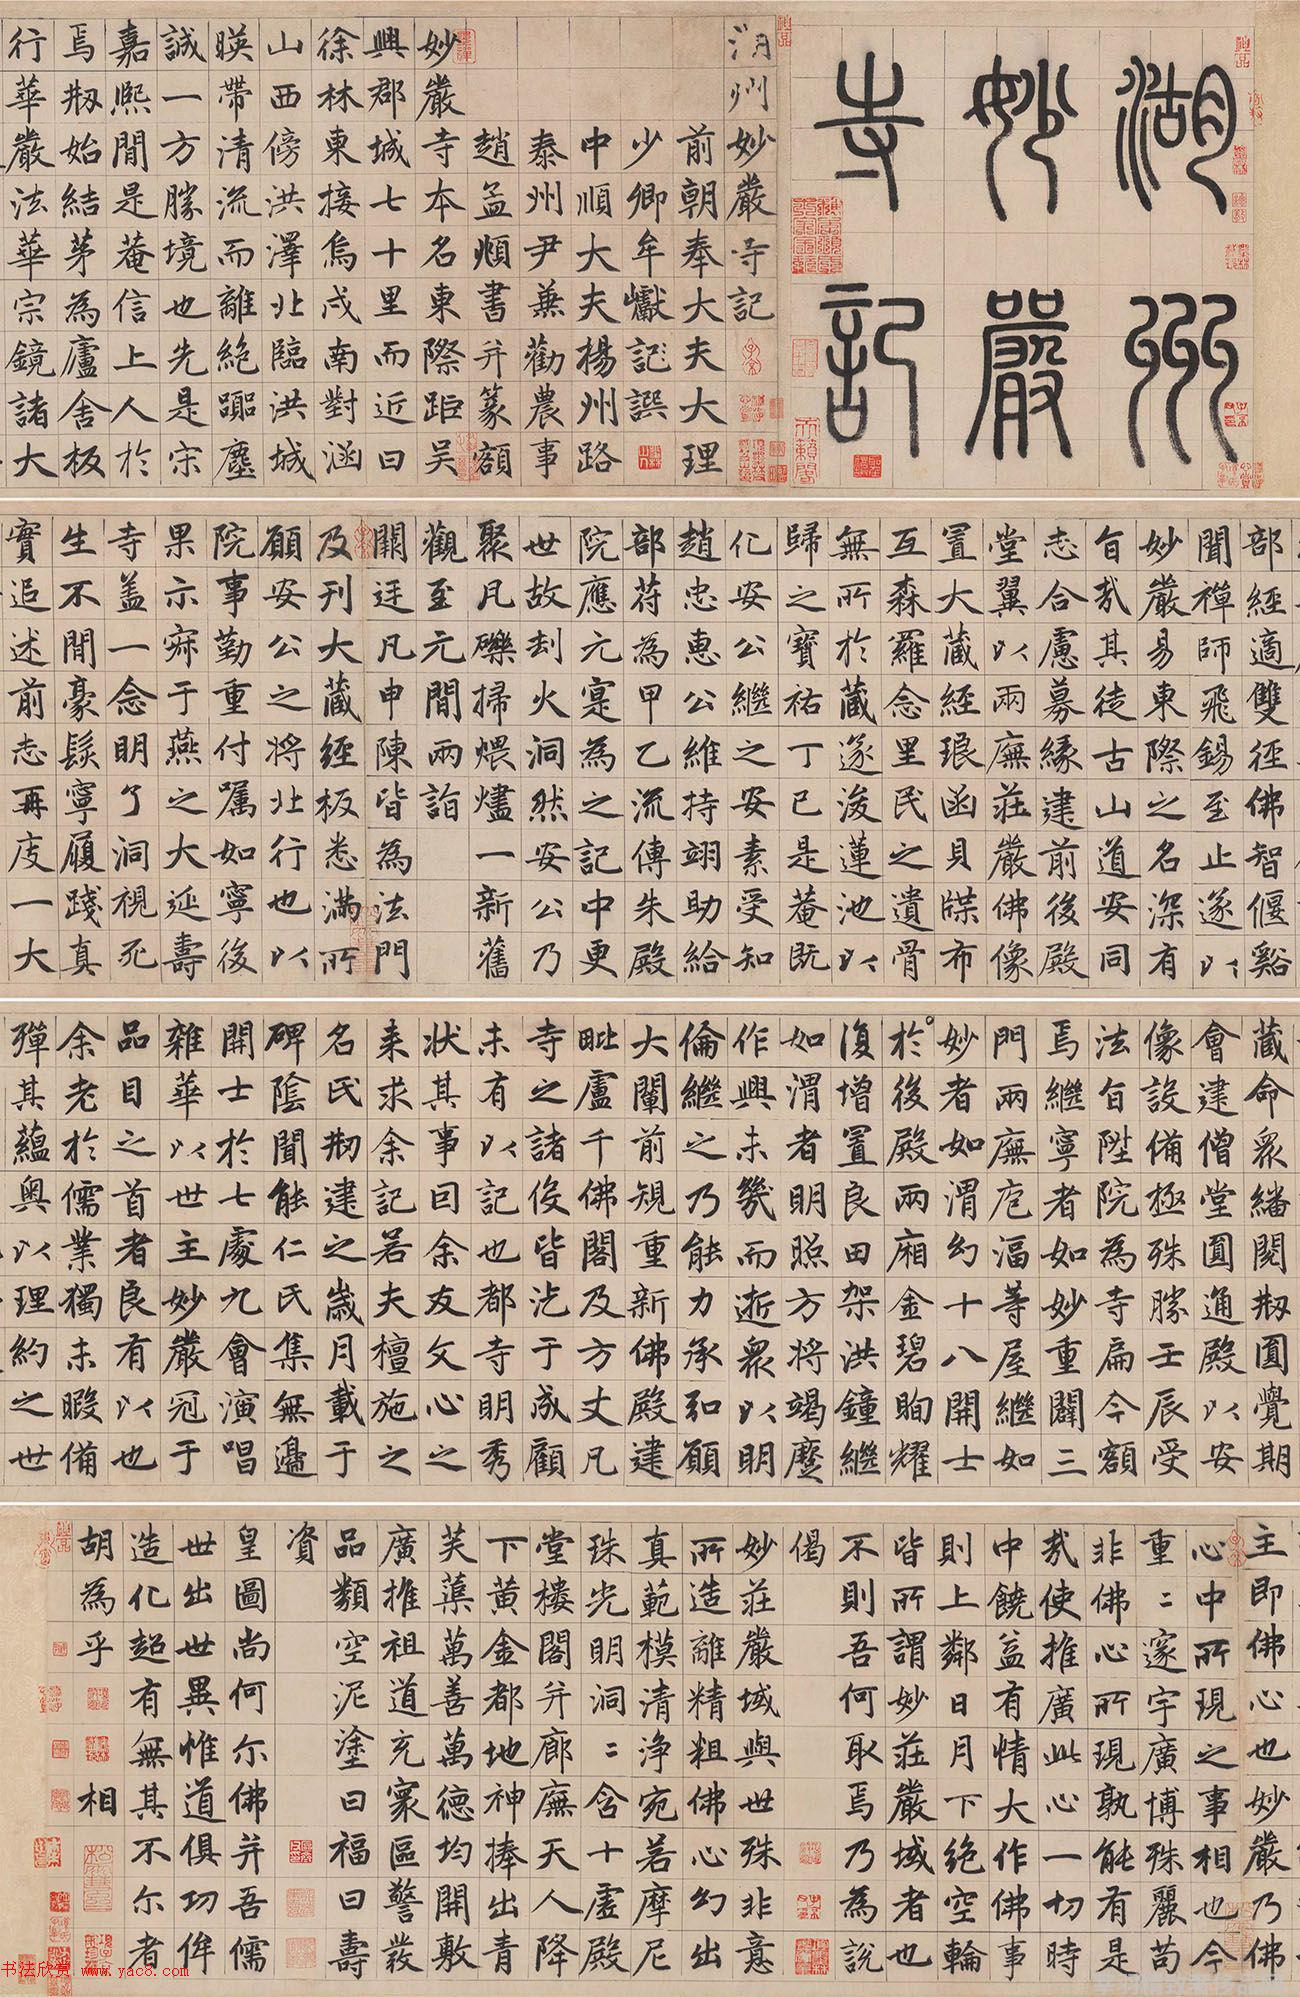 湖州
妙嚴
寺記
湖州妙嚴寺記
前朝奉大夫大理
少卿牟巘記譔
中順大夫楊州路
泰州尹兼勸農事
趙孟頫書并篆額
妙嚴寺本名東際距吳
興郡城七十里而近曰
徐林東接烏戍南對涵
山西傍洪澤北臨洪城
暎帶清流而離絕踰塵
誠一方勝境也先是宋
嘉熙間是菴信上人於
焉剏始結茅為廬舍板
行華嚴法華宗鏡諸大
部經適雙徑佛智偃谿
聞禪師飛錫至止遂以
妙嚴易東際之名深有
旨哉其徒古山道安同
志合慮募緣建前後殿
堂翼以兩廡莊嚴佛像
置大藏經琅函貝牒布
互森羅念里民之遺骨
無所於藏遂浚蓮池以
歸之寶祐丁巳是菴既
化安公繼之安素受知
趙忠惠公維持翊助給
部苻為甲乙流傳朱殿
院應元寔為之記中更
世故刦火洞然安公乃
聚凡礫掃煨燼一新舊
觀至元間兩詣
闕廷凡申陳皆為法門
及刊大藏經板悉滿所
願安公之將北行也以
院事勤重付囑如寧後
果示寂于燕之大延壽
寺盖一念明了洞視死
生不間豪髮寧履踐真
實追述前志再庋一大
藏命眾繙閱剏圓覺期
會建僧堂圓通殿以安
像設備極殊勝壬辰受
法旨陞院為寺扁今額
焉繼寧者如妙重闢三
門兩廡庖湢等屋繼如
妙者如渭幻十八開士
於後殿兩廂金碧眴耀
復增置良田架洪鐘繼
如渭者明照方將竭麽
作興未幾而逝眾以明
倫繼之乃能力承弘願
大闡前規重新佛殿建
毗盧千佛閣及方丈凡
寺之諸役皆汔于成顧
未有以記也都寺明秀
状其事囙余友文心之
来求余記若夫檀施之
名氏剏建之歲月載于
碑陰聞能仁氏集無邊
開士於七處九會演唱
雜華以世主妙嚴冠于
品目之首者良有以也
余老於儒業獨未暇備
殫其蘊奥以理約之世
主即佛心也妙嚴乃佛
心中所現之事相也今
重〻邃宇廣博殊麗苟
非佛心所現孰能有是
哉使推廣此心一切時
中饒益有情大作佛事
則上鄰日月下絶空輪
皆所謂妙莊嚴域者也
不則吾何取焉乃為說
偈
妙莊嚴域與世殊非意
所造離精粗佛心幻出
真範模清淨宛若摩尼
珠光明洞〻含十虛殿
堂樓閣并廊廡天人降
下黃金都地神捧出青
芙蕖萬善萬德均開敷
廣推祖道充寰區警發
品類空泥塗曰福曰壽
資
皇圖尚何尒佛并吾儒
世出世異惟道俱功侔
造化超有無其不尒者
胡為乎相
书法欣赏 www.yac8.com